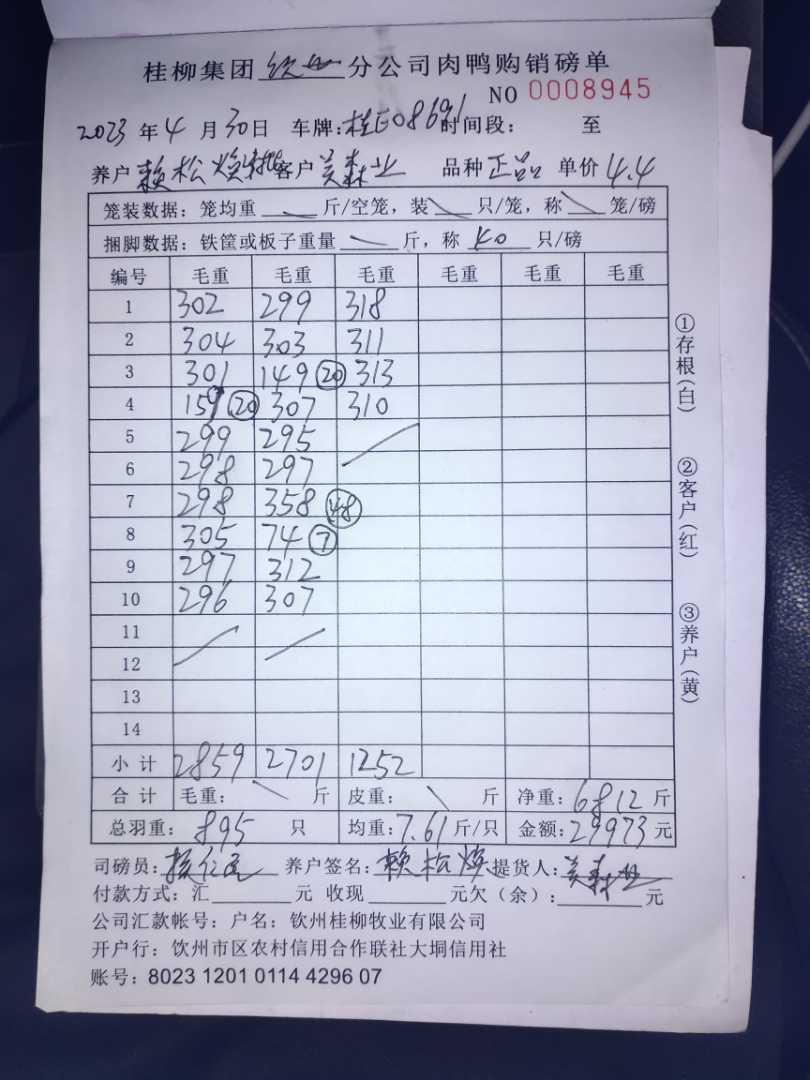 桂柳集团 钦州 分公司肉鸭购销磅单
NO 0008945
2023 年 4 月 30 日 车牌：桂E08691 时间段： 至
养户 赖松焕 客户 美森业 品种 正品 单价 4.4
笼装数据：笼均重 斤/空笼，装 只/笼，称 笼/磅
捆脚数据：铁筐或板子重量 斤，称 40 只/磅
编号 毛重 毛重 毛重 毛重 毛重 毛重
1 302 299 318
2 304 303 311
3 301 149 ⑳ 313
4 159 ⑳ 307 310
5 299 295
6 298 297
7 298 358 ㊽
8 305 74 ⑦
9 297 312
10 296 307
11
12
13
14
小 计 2859 2701 1252
合 计 毛重： 斤 皮重： 斤 净重：6812 斤
总羽重：895 只 均重：7.61 斤/只 金额：29973 元
司磅员： 养户签名：赖松焕 提货人：美森业
付款方式：汇 元 收现 元欠（余）： 元
公司汇款帐号：户名：钦州桂柳牧业有限公司
开户行：钦州市区农村信用合作联社大垌信用社
账号：8023 1201 0114 4296 07
①存根（白）
②客户（红）
③养户（黄）